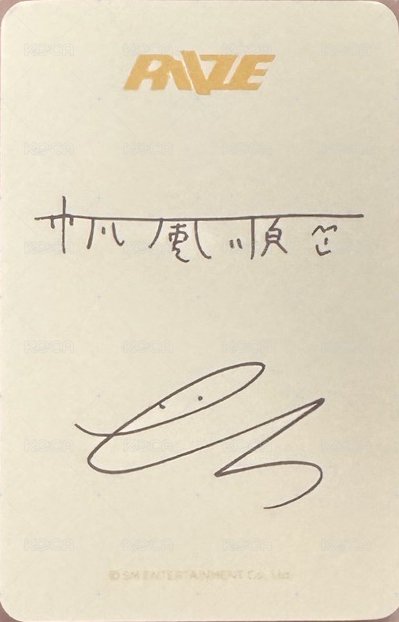 RIIZE
一帆風順
© SM ENTERTAINMENT Co., Ltd.